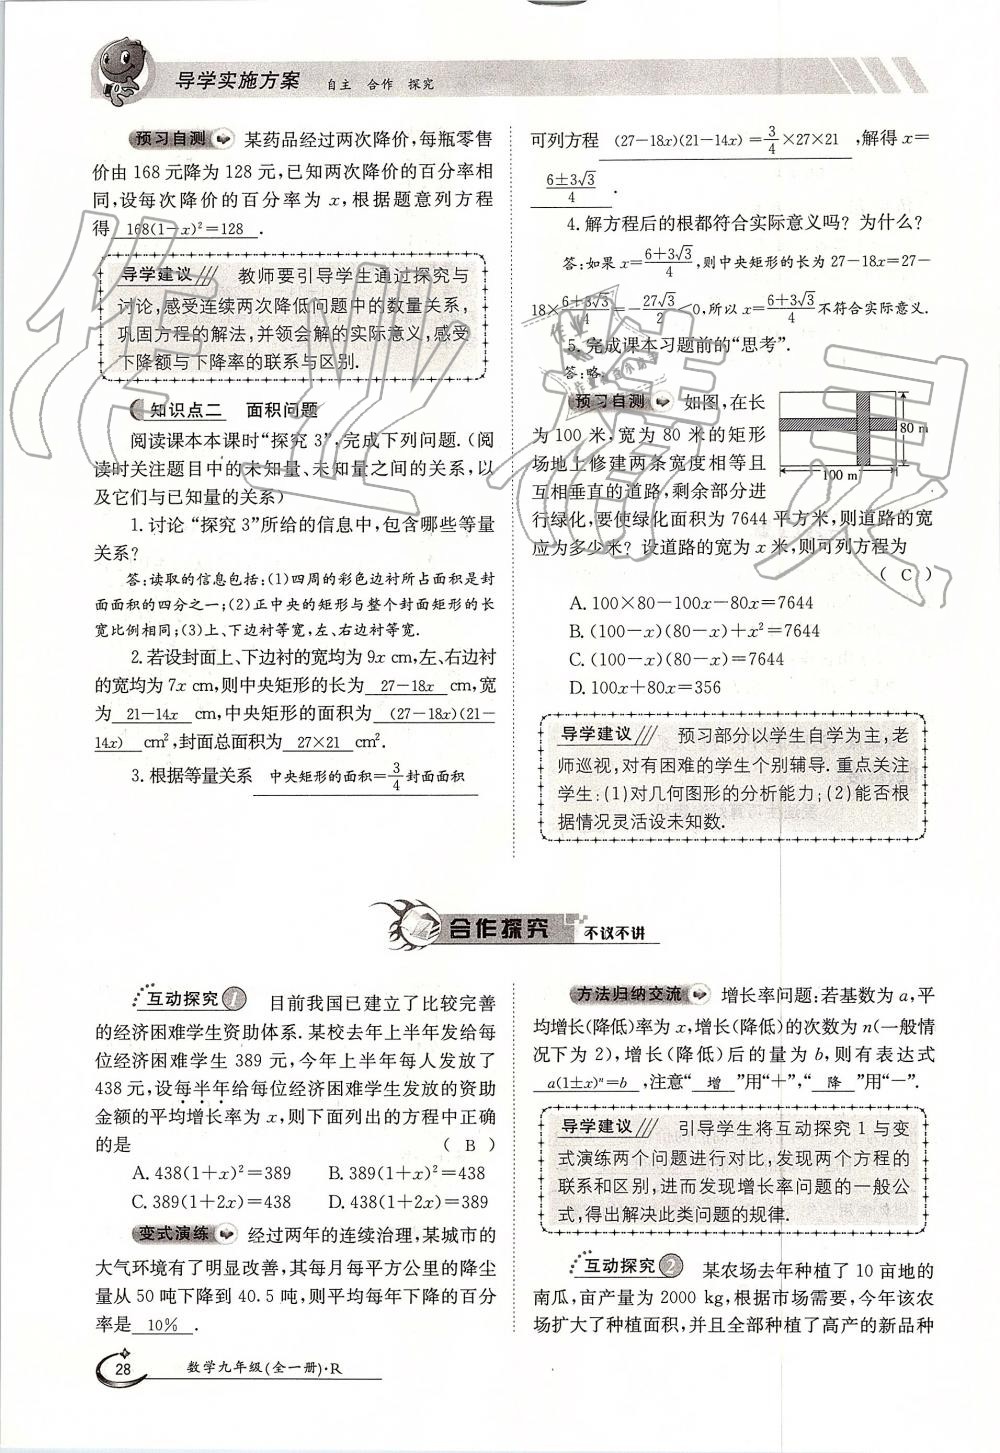 导学实施方案 自主 合作 探究
预习自测 某药品经过两次降价,每瓶零售
价由 168 元降为 128 元,已知两次降价的百分率相
同,设每次降价的百分率为 x,根据题意列方程
得 168(1-x)²=128 .
导学建议 教师要引导学生通过探究与
讨论,感受连续两次降低问题中的数量关系,
巩固方程的解法,并领会解的实际意义,感受
下降额与下降率的联系与区别.
知识点二 面积问题
阅读课本本课时“探究 3”,完成下列问题.(阅
读时关注题目中的未知量、未知量之间的关系,以
及它们与已知量的关系)
1. 讨论“探究 3”所给的信息中,包含哪些等量
关系?
答:读取的信息包括:(1)四周的彩色边衬所占面积是封
面面积的四分之一;(2)正中央的矩形与整个封面矩形的长
宽比例相同;(3)上、下边衬等宽,左、右边衬等宽.
2. 若设封面上、下边衬的宽均为 9x cm,左、右边衬
的宽均为 7x cm,则中央矩形的长为 27-18x cm,宽
为 21-14x cm,中央矩形的面积为 (27-18x)(21-
14x) cm²,封面总面积为 27×21 cm².
3. 根据等量关系 中央矩形的面积=3/4封面面积
可列方程 (27-18x)(21-14x)=3/4×27×21 ,解得 x=
6±3√3/4 .
4. 解方程后的根都符合实际意义吗? 为什么?
答:如果 x=6+3√3/4,则中央矩形的长为 27-18x=27-
18×6+3√3/4=-27√3/2<0,所以 x=6+3√3/4不符合实际意义.
5. 完成课本习题前的“思考”.
答:略.
预习自测 如图,在长
为 100 米,宽为 80 米的矩形
场地上修建两条宽度相等且
互相垂直的道路,剩余部分进
80 m
100 m
行绿化,要使绿化面积为 7644 平方米,则道路的宽
应为多少米? 设道路的宽为 x 米,则可列方程为
( C )
A. 100×80-100x-80x=7644
B. (100-x)(80-x)+x²=7644
C. (100-x)(80-x)=7644
D. 100x+80x=356
导学建议 预习部分以学生自学为主,老
师巡视,对有困难的学生个别辅导. 重点关注
学生:(1)对几何图形的分析能力;(2)能否根
据情况灵活设未知数.
合作探究 不议不讲
互动探究 1 目前我国已建立了比较完善
的经济困难学生资助体系. 某校去年上半年发给每
位经济困难学生 389 元,今年上半年每人发放了
438 元,设每半年给每位经济困难学生发放的资助
金额的平均增长率为 x,则下面列出的方程中正确
的是 ( B )
A. 438(1+x)²=389 B. 389(1+x)²=438
C. 389(1+2x)=438 D. 438(1+2x)=389
变式演练 经过两年的连续治理,某城市的
大气环境有了明显改善,其每月每平方公里的降尘
量从 50 吨下降到 40.5 吨,则平均每年下降的百分
率是 10% .
方法归纳交流 增长率问题:若基数为 a,平
均增长(降低)率为 x,增长(降低)的次数为 n(一般情
况下为 2),增长(降低)后的量为 b,则有表达式
a(1±x)ⁿ=b ,注意“ 增 ”用“+”,“ 降 ”用“-”.
导学建议 引导学生将互动探究 1 与变
式演练两个问题进行对比,发现两个方程的
联系和区别,进而发现增长率问题的一般公
式,得出解决此类问题的规律.
互动探究 2 某农场去年种植了 10 亩地的
南瓜,亩产量为 2000 kg,根据市场需要,今年该农
场扩大了种植面积,并且全部种植了高产的新品种
28 数学九年级(全一册)·R